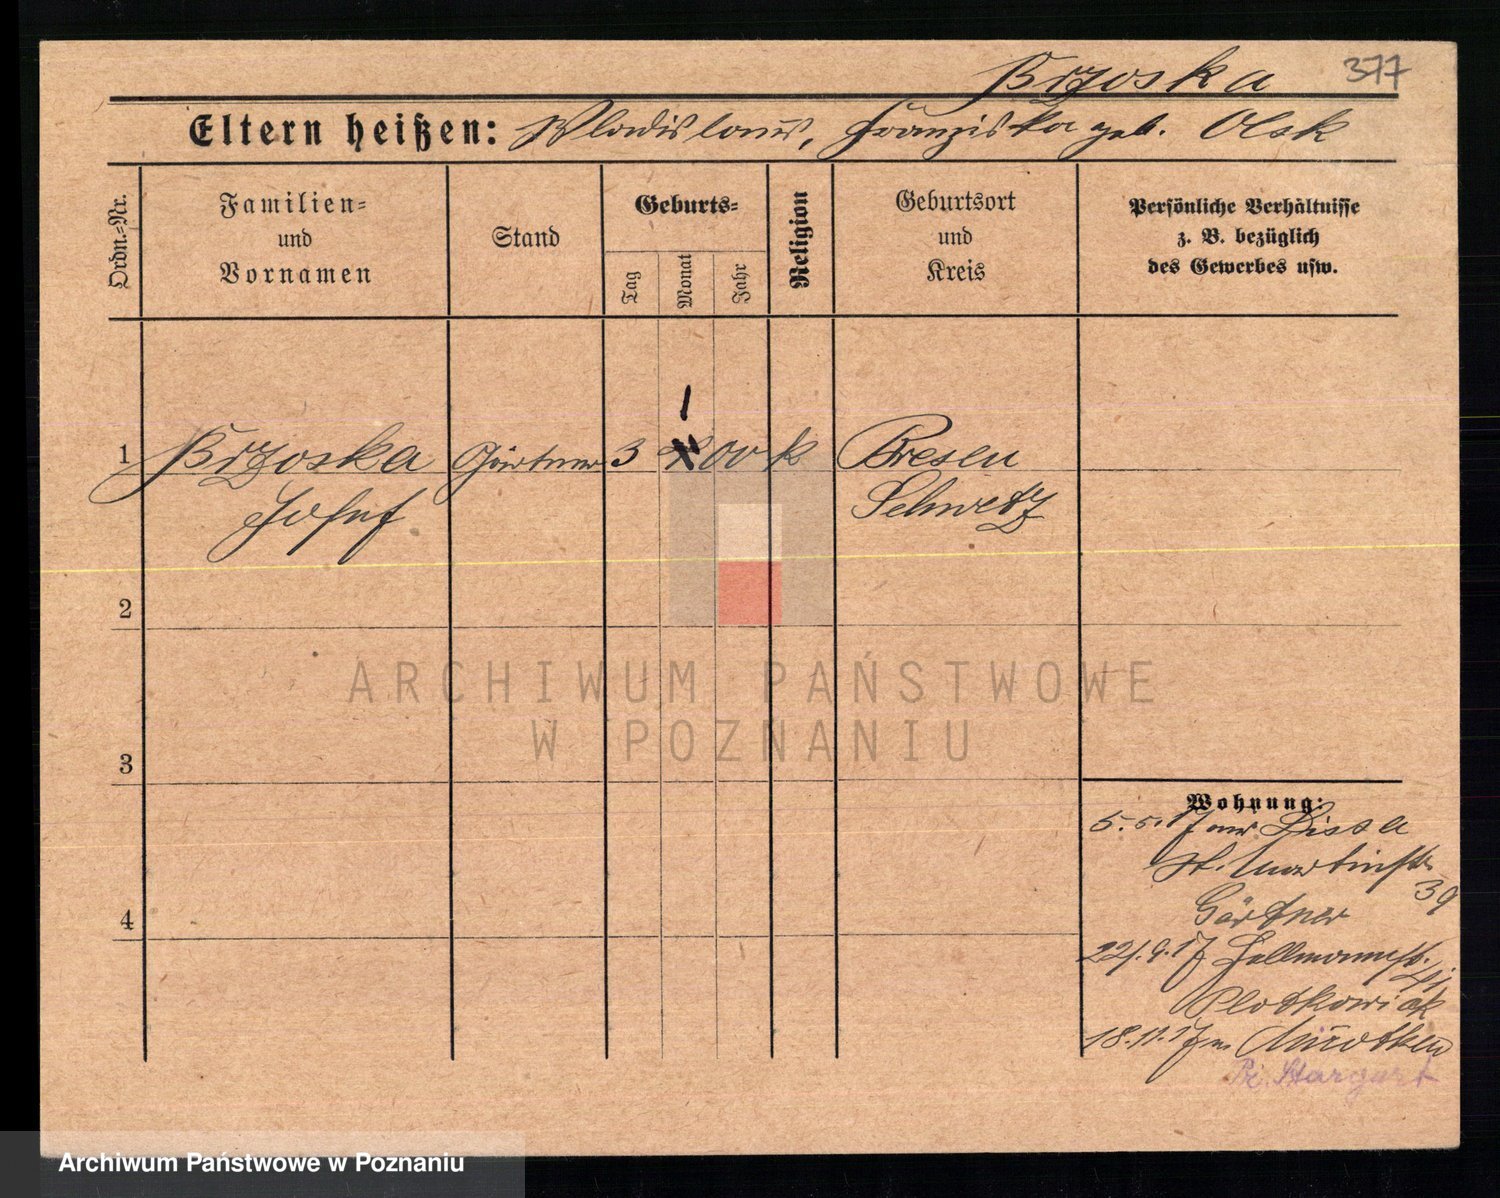 Brzoska 377
Eltern heißen: Wladislaus, Franziska geb. Olsk
Ordn.-Nr.
Familien- und Vornamen
Stand
Geburts-
Tag
Monat
Jahr
Religion
Geburtsort und Kreis
Persönliche Verhältnisse
z. B. bezüglich
des Gewerbes usw.
1
1 Brzoska Gärtner 3 00 k Bresen
Josef Schwetz
2
3
4
ARCHIWUM PAŃSTWOWE
W POZNANIU
Wohnung:
5.5.17 aus Lissa
St. Martinstr
39
Gärtner
22/.9.17 Hellmannstr.
Plotkowiak
18.11.17 n.
Pr. Stargart
Archiwum Państwowe w Poznaniu